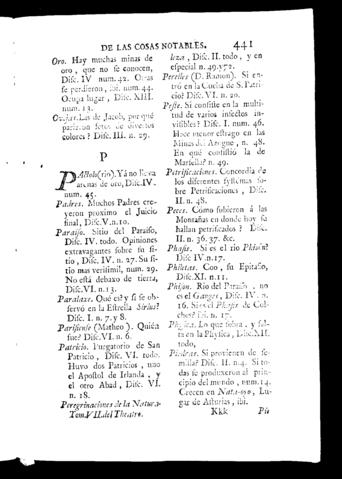 DE LAS COSAS NOTABLES. 441
Oro. Hay muchas minas de
oro, que no se conocen,
Disc. IV num. 42. Otras
se perdieron, ibi. num. 44.
Ocupa lugar, Disc. XIII.
num. 13.
Ovejas. Las de Jacob, por qué
parian fetos de diversos
colores? Disc. III. n. 29.
P
PActolo (rio). Yá no lleva
arenas de oro, Disc. IV.
num. 45.
Padres. Muchos Padres cre-
yeron proximo el Juicio
final, Disc. V. n. 10.
Paraiso. Sitio del Paraiso,
Disc. IV. todo. Opiniones
extravagantes sobre su si-
tio, Disc. IV. n. 27. Su si-
tio mas verisimil, num. 29.
No está debaxo de tierra,
Disc. VI. n. 13.
Paralaxe. Qué es? y si se ob-
servó en la Estrella Sirius?
Disc. I. n. 7. y 8.
Parisiense (Matheo). Quién
fue? Disc. VI. n. 6.
Patricio. Purgatorio de San
Patricio, Disc. VI. todo.
Huvo dos Patricios, uno
el Apostol de Irlanda, y
el otro Abad, Disc. VI.
n. 18.
Peregrinaciones de la Natura-
Tom. VII. del Theatro.
leza, Disc. II. todo, y en
especial n. 49. y 72.
Pereiles (D. Ramon). Si en-
tró en la Cueba de S. Patri-
cio? Disc. VI. n. 20.
Peste. Si consiste en la multi-
tud de varios insectos in-
visibles? Disc. I. num. 46.
Hace menor estrago en las
Minas del Azogue, n. 48.
En qué consistió la de
Marsella? n. 49.
Petrificaciones. Concordia de
los diferentes systemas so-
bre Petrificaciones, Disc.
II. n. 48.
Peces. Como subieron á las
Montañas en donde hoy se
hallan petrificados? Disc.
II. n. 36. 37. &c.
Phasis. Si es el rio Phison?
Disc IV. n. 17.
Philetas. Coo, su Epitafio,
Disc. XI. n. 11.
Phison. Rio del Paraiso, no
es el Ganges, Disc. IV. n.
16. Si es el Phasis de Col-
chos? Ibi. n. 17.
Physica. Lo que sobra, y fal-
ta en la Physica, Disc. XII.
todo,
Piedras. Si provienen de se-
milla? Disc. II. n. 4. Si to-
das se produxeron al prin-
cipio del mundo, num. 14.
Crecen en Lu-
gar de Asturias, ibi.
Kkk Pie